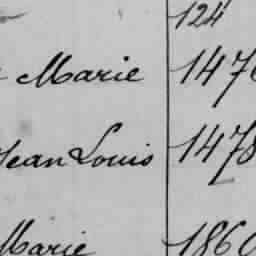 124
Marie 147
Jean Louis 1478
Marie 1860